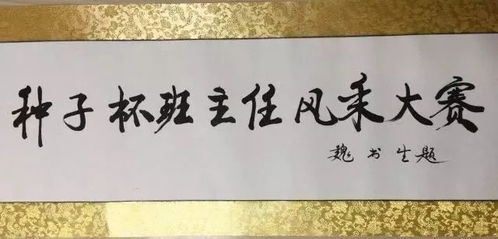 种子杯班主任风采大赛
魏书生题